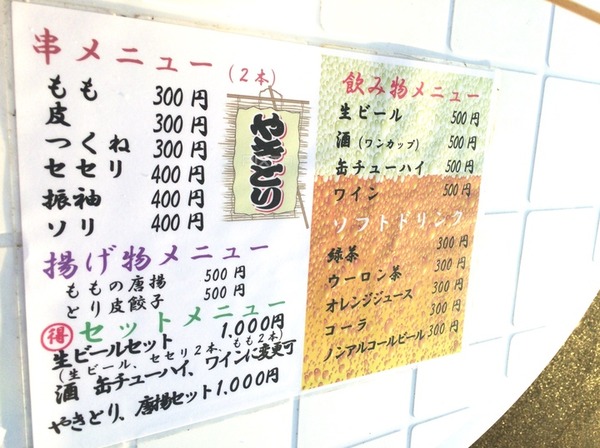 串メニュー(2本)
もも 300円
皮 300円
つくね 300円
セセリ 400円
振袖 400円
ソリ 400円
やきとり
揚げ物メニュー
ももの唐揚 500円
とり皮餃子 500円
得 セットメニュー
生ビールセット 1.000円
(生ビール、セセリ2本、もも2本)
酒 缶チューハイ、ワインに変更可
やきとり、唐揚セット1.000円
飲み物メニュー
生ビール 500円
酒(ワンカップ) 500円
缶チューハイ 500円
ワイン 500円
ソフトドリンク
緑茶 300円
ウーロン茶 300円
オレンジジュース 300円
コーラ 300円
ノンアルコールビール 300円